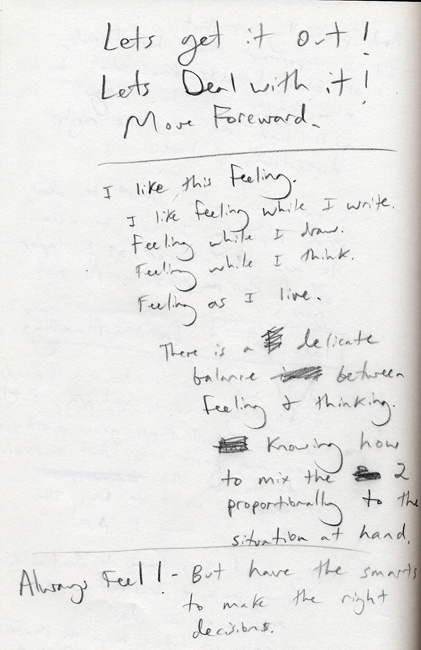 Lets get it out!
Lets Deal with it!
Move Foreward.
I like this feeling.
I like feeling while I write.
Feeling while I draw.
Feeling while I think.
Feeling as I live.
There is a delicate
balance between
feeling & thinking.
Knowing how
to mix the 2
proportionally to the
situation at hand.
Always Feel! - But have the smarts
to make the right
decisions.